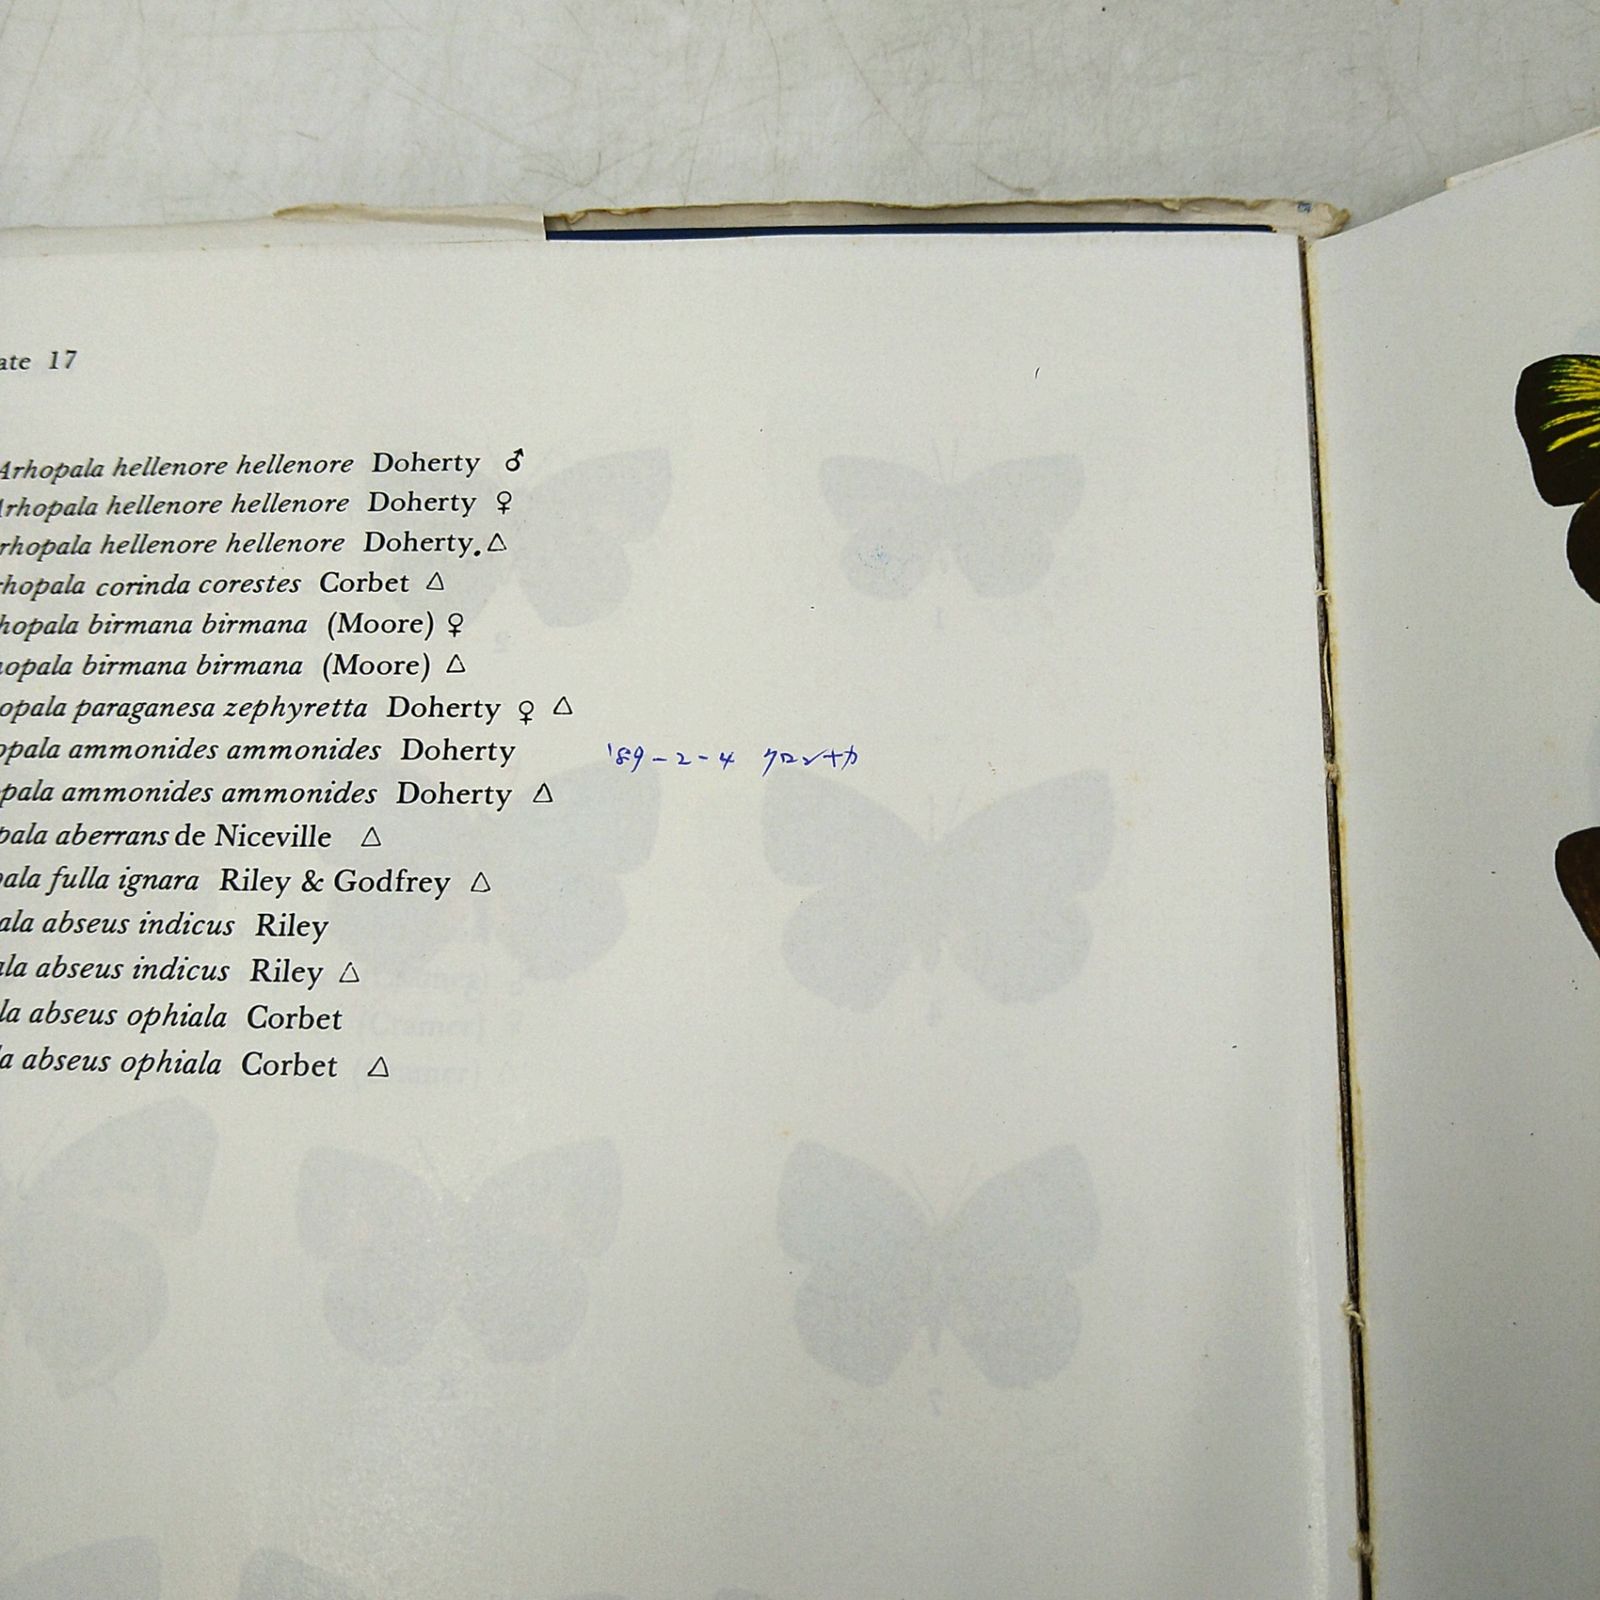 ate 17
Arhopala hellenore hellenore Doherty ♂
rhopala hellenore hellenore Doherty ♀
rhopala hellenore hellenore Doherty. △
hopala corinda corestes Corbet △
hopala birmana birmana (Moore) ♀
opala birmana birmana (Moore) △
opala paraganesa zephyretta Doherty ♀ △
opala ammonides ammonides Doherty '89-2-4
pala ammonides ammonides Doherty △
pala aberrans de Niceville △
pala fulla ignara Riley & Godfrey △
ala abseus indicus Riley
ala abseus indicus Riley △
la abseus ophiala Corbet
a abseus ophiala Corbet △